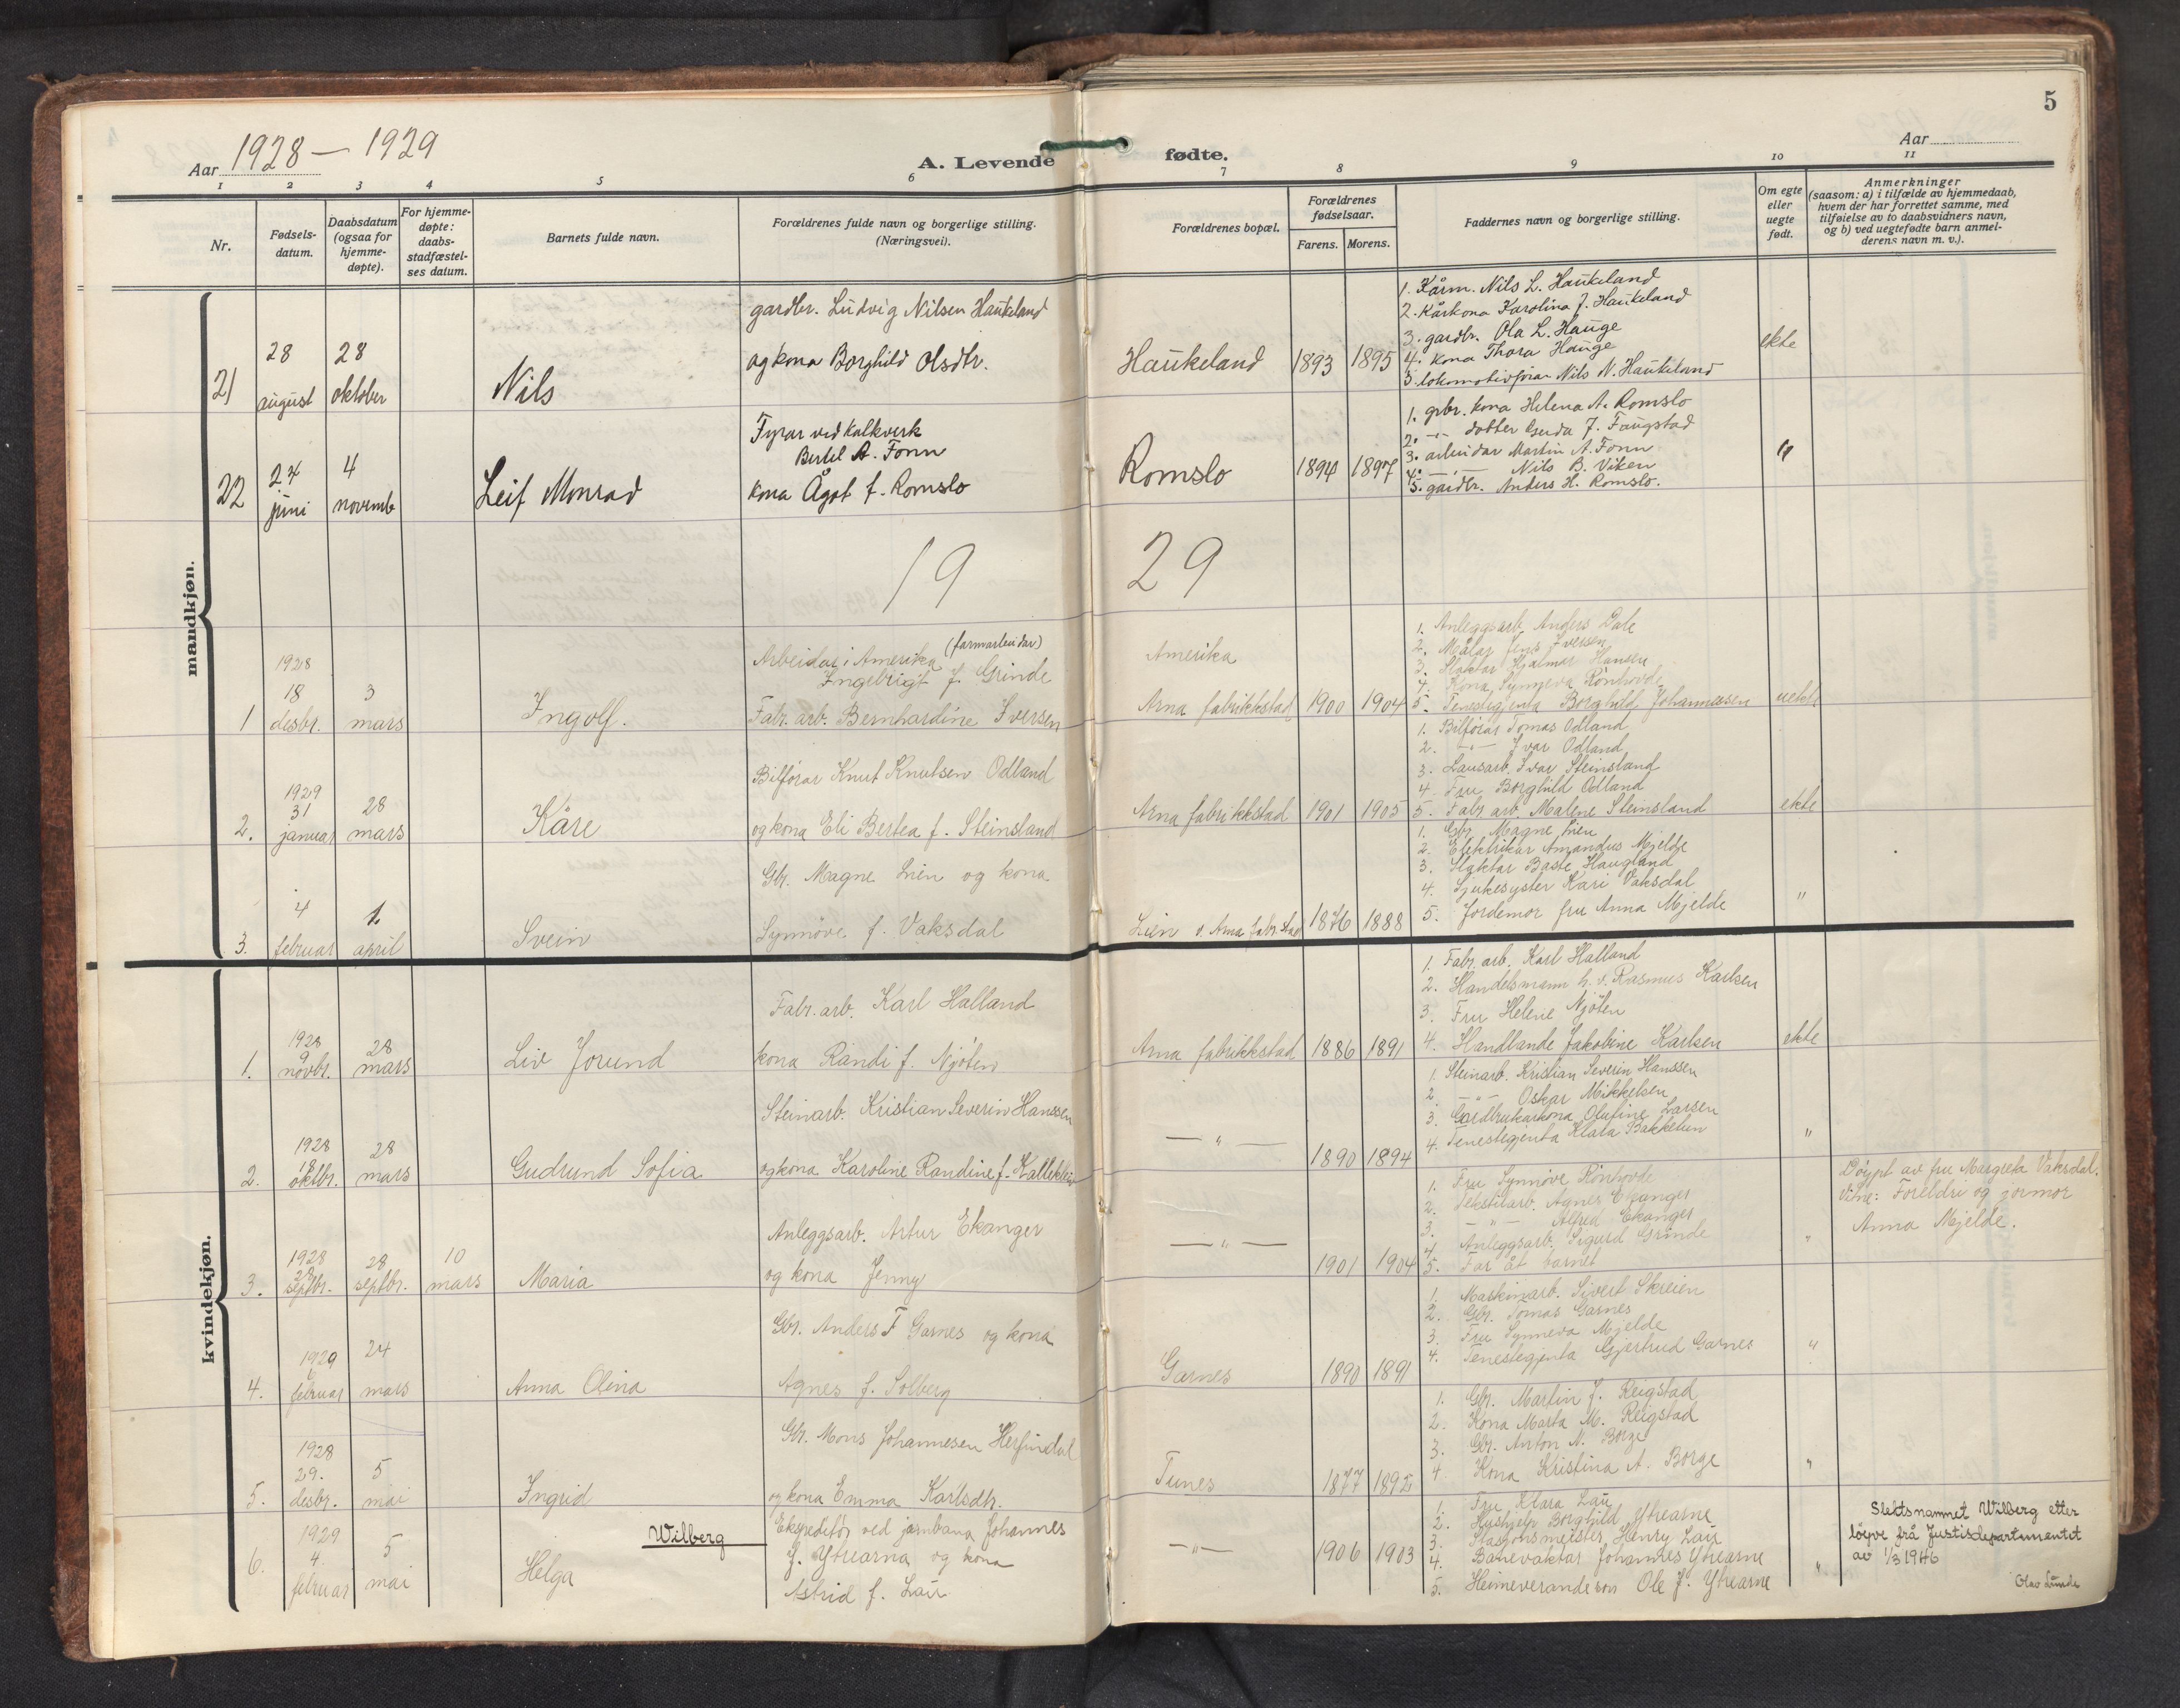 5
Aar 1928 — 1929
A. Levende fødte.
Aar
1 2 3 4 5 6 7 8 9 10 11
Nr.
Fødsels-
datum.
Daabsdatum
(ogsaa for
hjemme-
døpte).
For hjemme-
døpte:
daabs-
stadfæstel-
ses datum.
Barnets fulde navn.
Forældrenes fulde navn og borgerlige stilling.
(Næringsvei).
Forældrenes bopæl.
Forældrenes
fødselsaar.
Farens. Morens.
Faddernes navn og borgerlige stilling.
Om egte
eller
uegte
født.
Anmerkninger
(saasom: a) i tilfælde av hjemmedaab,
hvem der har forrettet samme, med
tilføielse av to daabsvidners navn,
og b) ved uegtefødte barn anmel-
derens navn m. v.).
mandkjøn.
21
28
august
28
oktober
Nils
gardbr. Ludvig Nilsen Haukeland
og kona Borghild Olsdtr.
Haukeland
1893 1895
1. Kårm. Nils L. Haukeland
2. Kårkona Karolina J. Haukeland
3. gardbr. Ola L. Hauge
4. kona Thora Hauge
5. lokomotivførar Nils N. Haukeland
ekte
22
24
juni
4
novemb
Leif Monrad
Fyrar ved kalkverk
Bertel A. Fonn
kona Ågot f. Romslo
Romslo
1894 1897
1. grbr. kona Helena A. Romslo
2. —"— dotter Gerda J. Faugstad
3. arbeidar Martin A. Fonn
4. —"— Nils B. Viken
5. gardbr. Anders H. Romslo.
"
19 29
1
1928
18
desbr.
3
mars
Ingolf.
Arbeidar i Amerika (farmarbeidar)
Ingebrigt J. Grinde
Fabr. arb. Bernhardine Iversen
Amerika
Arna fabrikkstad
1900 1904
1. Anleggsarb. Anders Dale
2. Målar Jens Iversen
3. Slaktar Hjalmar Hansen
4. Kona Synneva Rönhovde
5. Tenestgjenta Borghild Johannessen
uekte
2.
1929
31
januar
28
mars
Kåre
Bilförar Knut Knutsen Odland
og kona Eli Bertea f. Steinsland
Arna fabrikkstad
1901 1905
1. Bilförar Tomas Odland
2. —"— Ivar Odland
3. Lausarb. Ivar Steinsland
4. Fru Borghild Odland
5. Fabr arb. Malene Steinsland
ekte
3.
4
februar
1.
april
Svein
Gbr. Magne Lien og kona
Synnöve f. Vaksdal
Lien v. Arna fabr. stad
1876 1888
1. Gbr. Magne Lien
2. Elektrikar Amandus Mjelde
3. Slaktar Baste Haugland
4. Sjukesyster Kari Vaksdal
5. Jordemor fru Anna Mjelde
"
kvindekjøn.
1.
1928
9
novbr.
28
mars
Liv Jorund
Fabr. arb. Karl Halland
kona Randi f. Njöten
Arna fabrikkstad
1886 1891
1. Fabr. arb. Karl Halland
2. Handelsmann h. v. Rasmus Karlsen
3. Fru Helene Njöten
4. Handlande Jakobine Karlsen
ekte
2.
1928
18
oktbr.
28
mars
Gudrund Sofia
Steinarb. Kristian Severin Hanssen
og kona Karoline Randine f. Kallekleiv
— " —
1890 1894
1. Steinarb. Kristian Severin Hanssen
2. —"— Oskar Mikkelsen
3. Gardbrukarkona Olufine Larsen
4. Tenestegjenta Klara Bakketun
"
3.
1928
28
septbr.
28
septbr.
10
mars
Maria
Anleggsarb. Artur Ekanger
og kona Jenny
— " —
1901 1904
1. Fru Synnöve Rönhovde
2. Tekstilarb. Agnes Ekanger
3. —"— Alfred Ekanger
4. Anleggsarb. Sigurd Grinde
5. Far åt barnet
"
Döypt av fru Margreta Vaksdal.
Vitne: Foreldri og jormor
Anna Mjelde.
4.
1929
6
februar
24
mars
Anna Olina
Gbr. Anders F Garnes og kona
Agnes f. Solberg
Garnes
1890 1891
1. Maskinarb. Sivert Skreien
2. Gbr. Tomas Garnes
3. Fru Synneva Mjelde
4. Tenestegjenta Gjertrud Garnes
"
5.
1928
29.
desbr.
5
mai
Ingrid
Gbr. Mons Johannesen Herfindal
og kona Emma Karlsdtr.
Tunes
1877 1892
1. Gbr. Martin J. Reigstad
2. Kona Marta M. Reigstad
3. Gbr. Anton N. Borge
4. Kona Kristina A. Borge
"
6.
1929
4.
februar
5
mai
Helga
Wilberg
Ekspeditör ved jarnbana Johannes
J. Ytrearna og kona
Astrid f. Lau
—"—
1906 1903
1. Fru Klara Lau
2. Hushjelp Borghild Ytrearne
3. Stasjonsmeister Henry Lau
4. Banevaktar Johannes Ytrearne
5. Heimeverande son Ole J. Ytrearne
"
Slektsnamnet Wilberg etter
löyve frå Justisdepartementet
av 1/3 1946
Olav Lunde